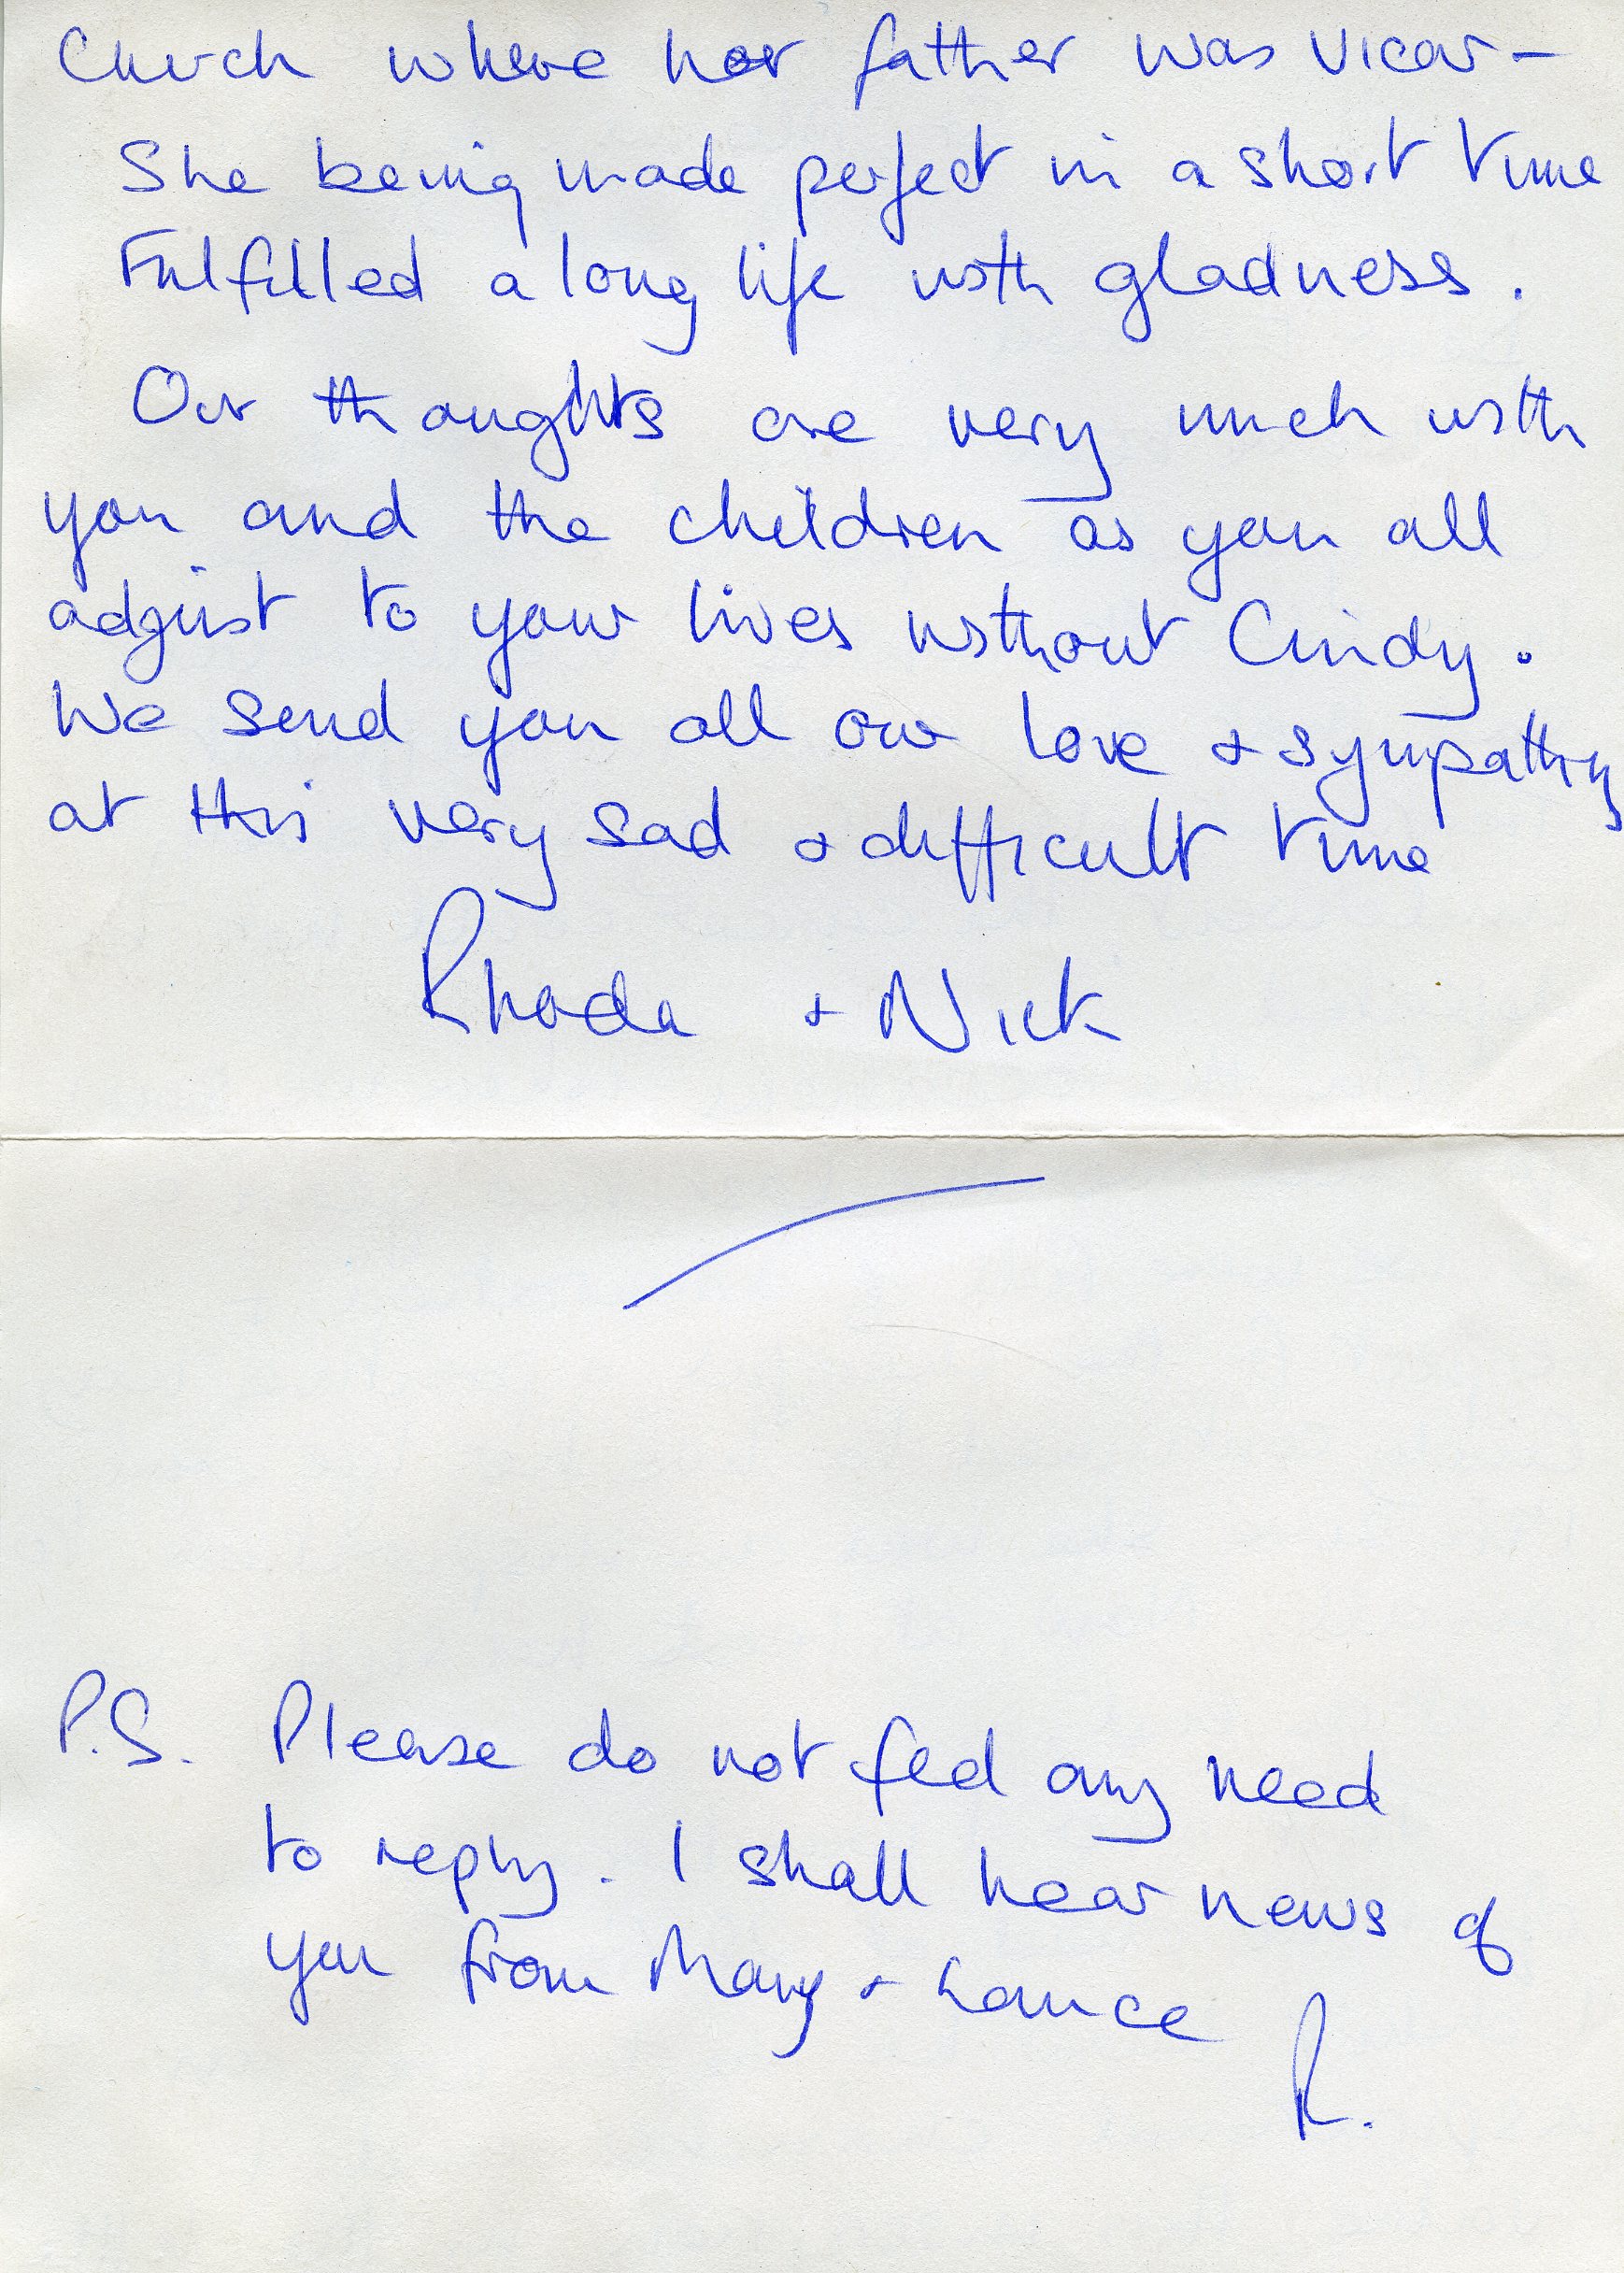 Church where her father was Vicar –
She being made perfect in a short time
Fulfilled a long life with gladness.
Our thoughts are very much with
you and the children as you all
adjust to your lives without Cindy.
We send you all our love & sympathy
at this very sad & difficult time
Rhoda + Nick
P.S. Please do not feel any need
to reply. I shall hear news of
you from Mary + Lance
R.